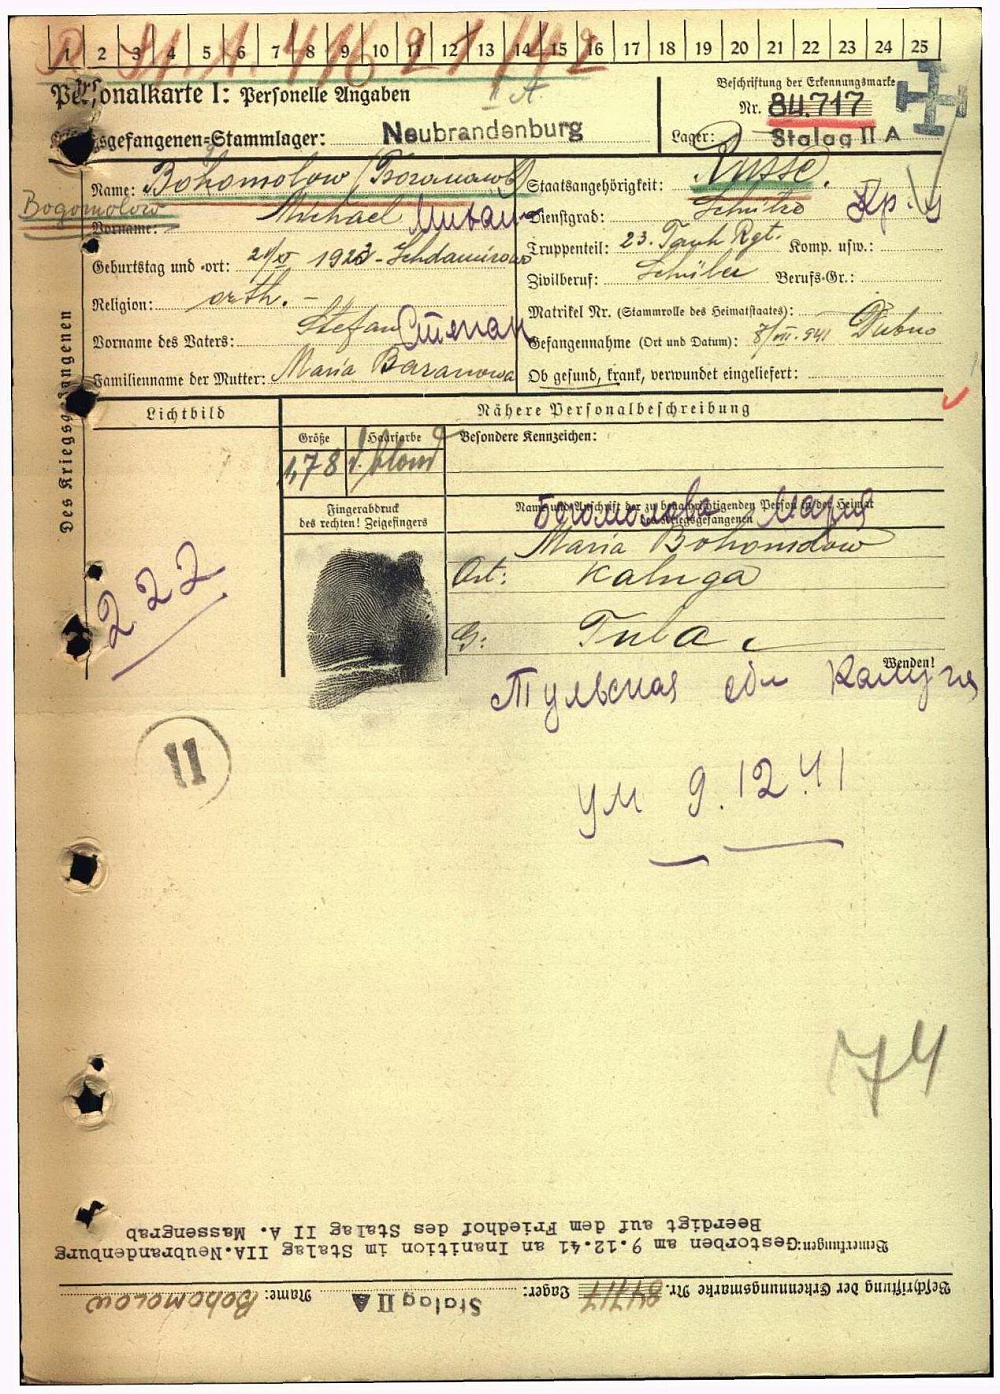 1 2 3 4 5 6 7 8 9 10 11 12 13 14 15 16 17 18 19 20 21 22 23 24 25
Personalkarte I: Personelle Angaben
II A.
Beschriftung der Erkennungsmarke
Nr. 84.717
Kriegsgefangenen-Stammlager: Neubrandenburg
Lager: Stalag II A
Des Kriegsgefangenen
Name: Bohomolow
Bogomolow
Vorname: Michael
Geburtstag und -ort: 1923
Religion: orth. -
Vorname des Vaters: Stefan Степан
Familienname der Mutter: Maria Baranowa
Staatsangehörigkeit: Russe.
Dienstgrad: Schütze Кр.
Truppenteil: 23. Rgt. Komp. usw.:
Zivilberuf: Schüler Berufs-Gr.:
Matrikel Nr. (Stammrolle des Heimatstaates):
Gefangennahme (Ort und Datum): 8/VII. 941 Dubno
Ob gesund, krank, verwundet eingeliefert:
Lichtbild
Nähere Personalbeschreibung
Größe
1,78
Haarfarbe
d. blond
Besondere Kennzeichen:
Fingerabdruck
des rechten! Zeigefingers
Name und Anschrift der zu benachrichtigenden Person in der Heimat
des Kriegsgefangenen
Богомолова Мария
Maria Bohomolow
Ort: Kaluga
G: Tula
Wenden!
222
Тульская обл Калуга
11
ум 9.12.41
74
Bemerkungen: Gestorben am 9.12.41 an Inanition im Stalag IIA.Neubrandenburg
Beerdigt auf dem Friedhof des Stalag II A. Massengrab
Beschriftung der Erkennungsmarke Nr. 84717 Lager: Stalag II A Name: Bohomolow